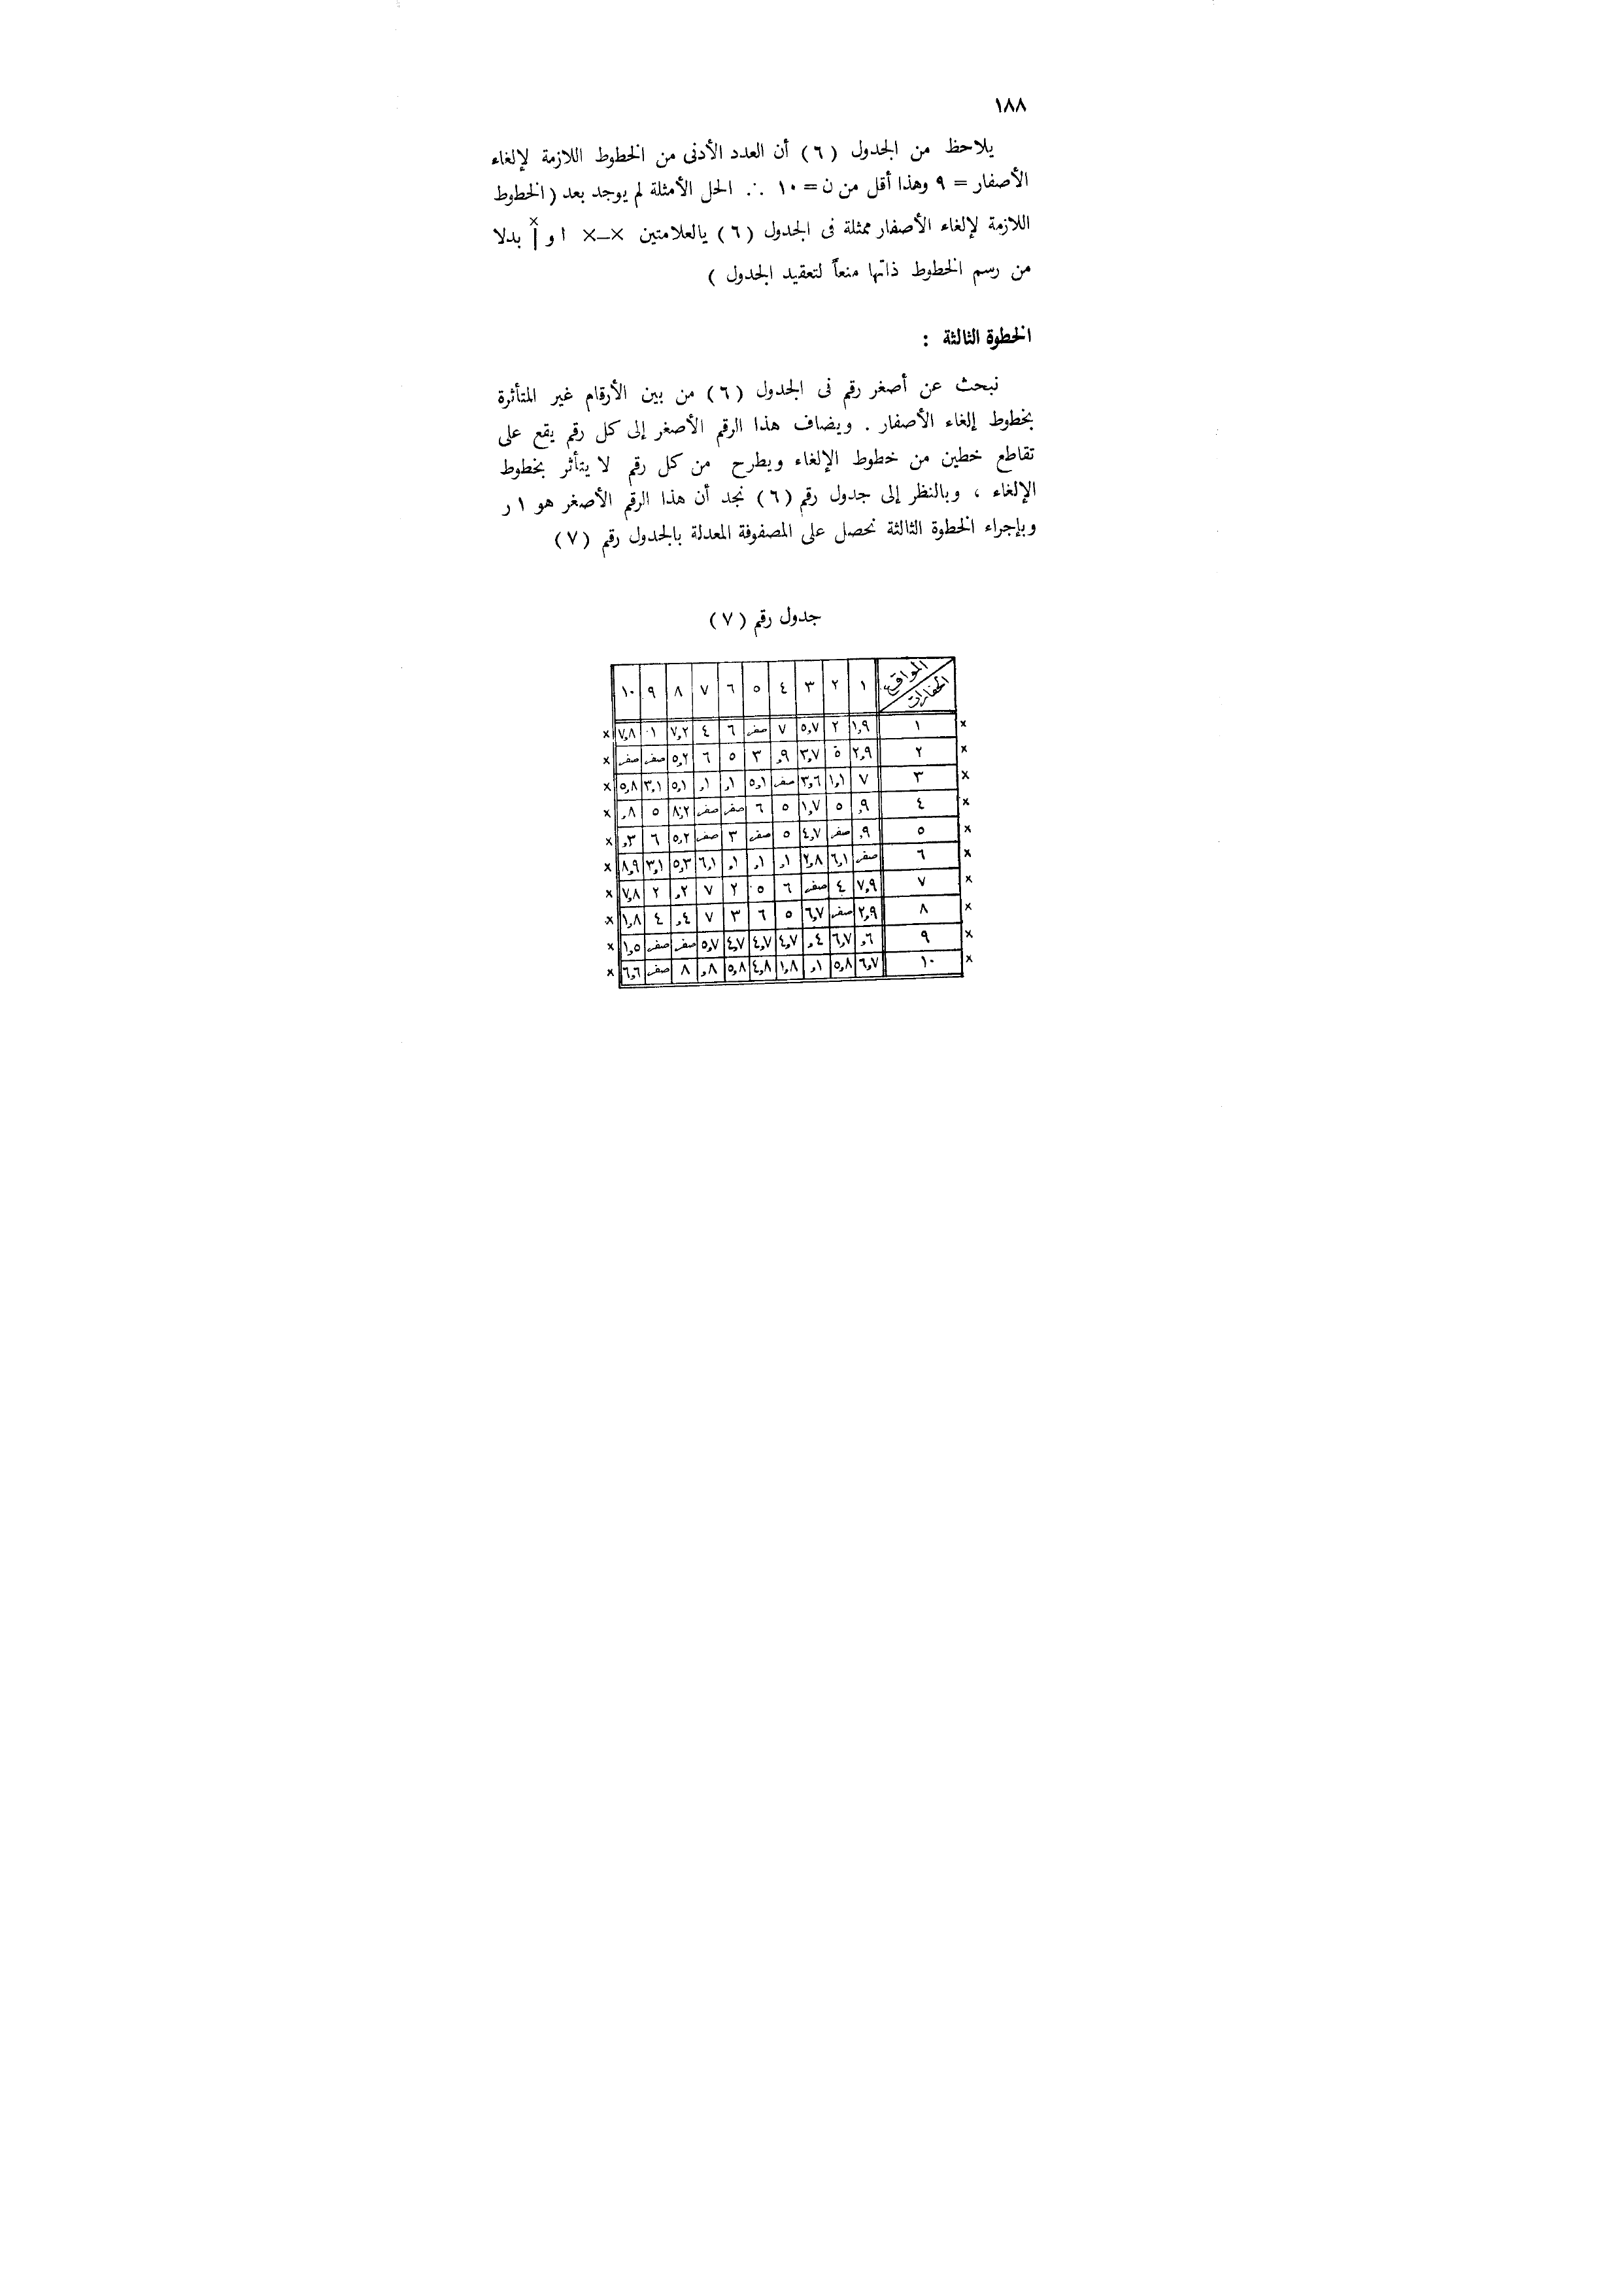 ١٨٨
يلاحظ من الجدول ( ٦ ) أن العدد الأدنى من الخطوط اللازمة لإلغاء
الأصفار = ٩ وهذا أقل من ن = ١٠ ∴ الحل الأمثلة لم يوجد بعد ( الخطوط
اللازمة لإلغاء الأصفار ممثلة فى الجدول ( ٦ ) يالعلامتين ×—× ا و أ× بدلا
من رسم الخطوط ذاتها منعاً لتعقيد الجدول )
الخطوة الثالثة :
نبحث عن أصغر رقم فى الجدول ( ٦ ) من بين الأرقام غير المتأثرة
بخطوط إلغاء الأصفار . ويضاف هذا الرقم الأصغر إلى كل رقم يقع على
تقاطع خطين من خطوط الإلغاء ويطرح من كل رقم لا يتأثر بخطوط
الإلغاء ، وبالنظر إلى جدول رقم ( ٦ ) نجد أن هذا الرقم الأصغر هو ١ ر
وبإجراء الخطوة الثالثة نحصل على المصفوفة المعدلة بالجدول رقم ( ٧ )
جدول رقم ( ٧ )
المواقع الحفارات ١ ٢ ٣ ٤ ٥ ٦ ٧ ٨ ٩ ١٠
× ١ ١,٩ ٢ ٥,٧ ٧ صفر ٦ ٤ ٧,٢ ١ ٧,٨ ×
× ٢ ٢,٩ ٥ ٣,٧ ٩, ٣ ٥ ٦ ٥,٢ صفر صفر ×
× ٣ ٧ ١,١ ٣,٦ صفر ٥,١ ١, ١, ٥,١ ٣,١ ٥,٨ ×
× ٤ ٩, ٥ ١,٧ ٥ ٦ صفر صفر ٨,٢ ٥ ٨, ×
× ٥ ٩, صفر ٤,٧ ٥ صفر ٣ صفر ٥,٢ ٦ ٣, ×
× ٦ صفر ٦,١ ٢,٨ ١, ١, ١, ٦,١ ٥,٣ ٣,١ ٨,٩ ×
× ٧ ٧,٩ ٤ صفر ٦ ٥ ٢ ٧ ٢, ٢ ٧,٨ ×
× ٨ ٢,٩ صفر ٦,٧ ٥ ٦ ٣ ٧ ٤, ٤ ١,٨ ×
× ٩ ٦, ٦,٧ ٤, ٤,٧ ٤,٧ ٤,٧ ٥,٧ صفر صفر ١,٥ ×
× ١٠ ٦,٧ ٥,٨ ١, ١,٨ ٤,٨ ٥,٨ ٨, ٨ صفر ٦,٦ ×